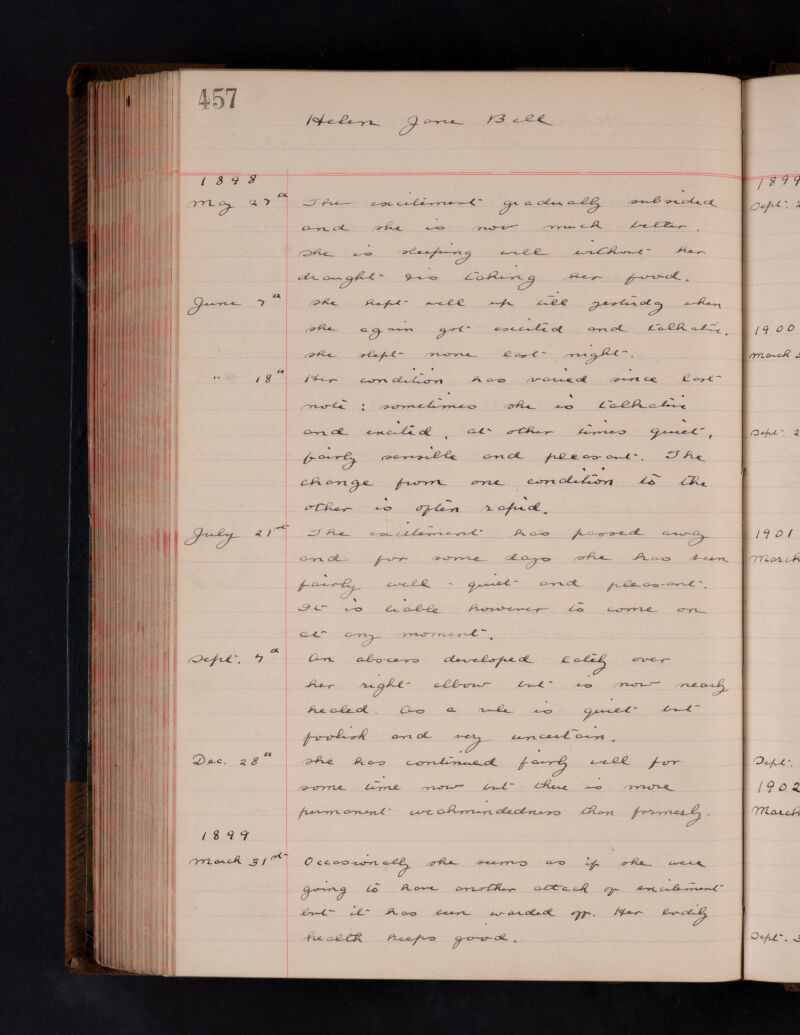 457
Helen Jane Bell
1898
May 27th The excitement gradually subsided
and she is now much better.
She is sleeping well without her
draught & is taking her food.
June 7th She kept well up till yesterday when
she again got excited and talkative,
she slept none last night.
" 18th Her condition has varied since last
note : sometimes she is talkative
and excited, at other times quiet,
fairly sensible and pleasant. The
change from one condition to the
other is often rapid.
July 21st The excitement has passed away
and for some days she has been
fairly well - quiet and pleasant.
It is liable however to come on
at any moment.
Sept. 7th An abscess developed lately over
her right elbow but is now nearly
healed. As a rule is quiet but
foolish and very uncertain.
Dec. 28th She has continued fairly well for
some time now but there is more
permanent weakmindedness than formerly.
1899
March 31st Occasionally she seems as if she were
going to have another attack of excitement
but it has been warded off. Her bodily
health keeps good.
1899
Sept. 2
1900
March
Sept. 2
1901
March
Sept.
1902
March
Sept. 3